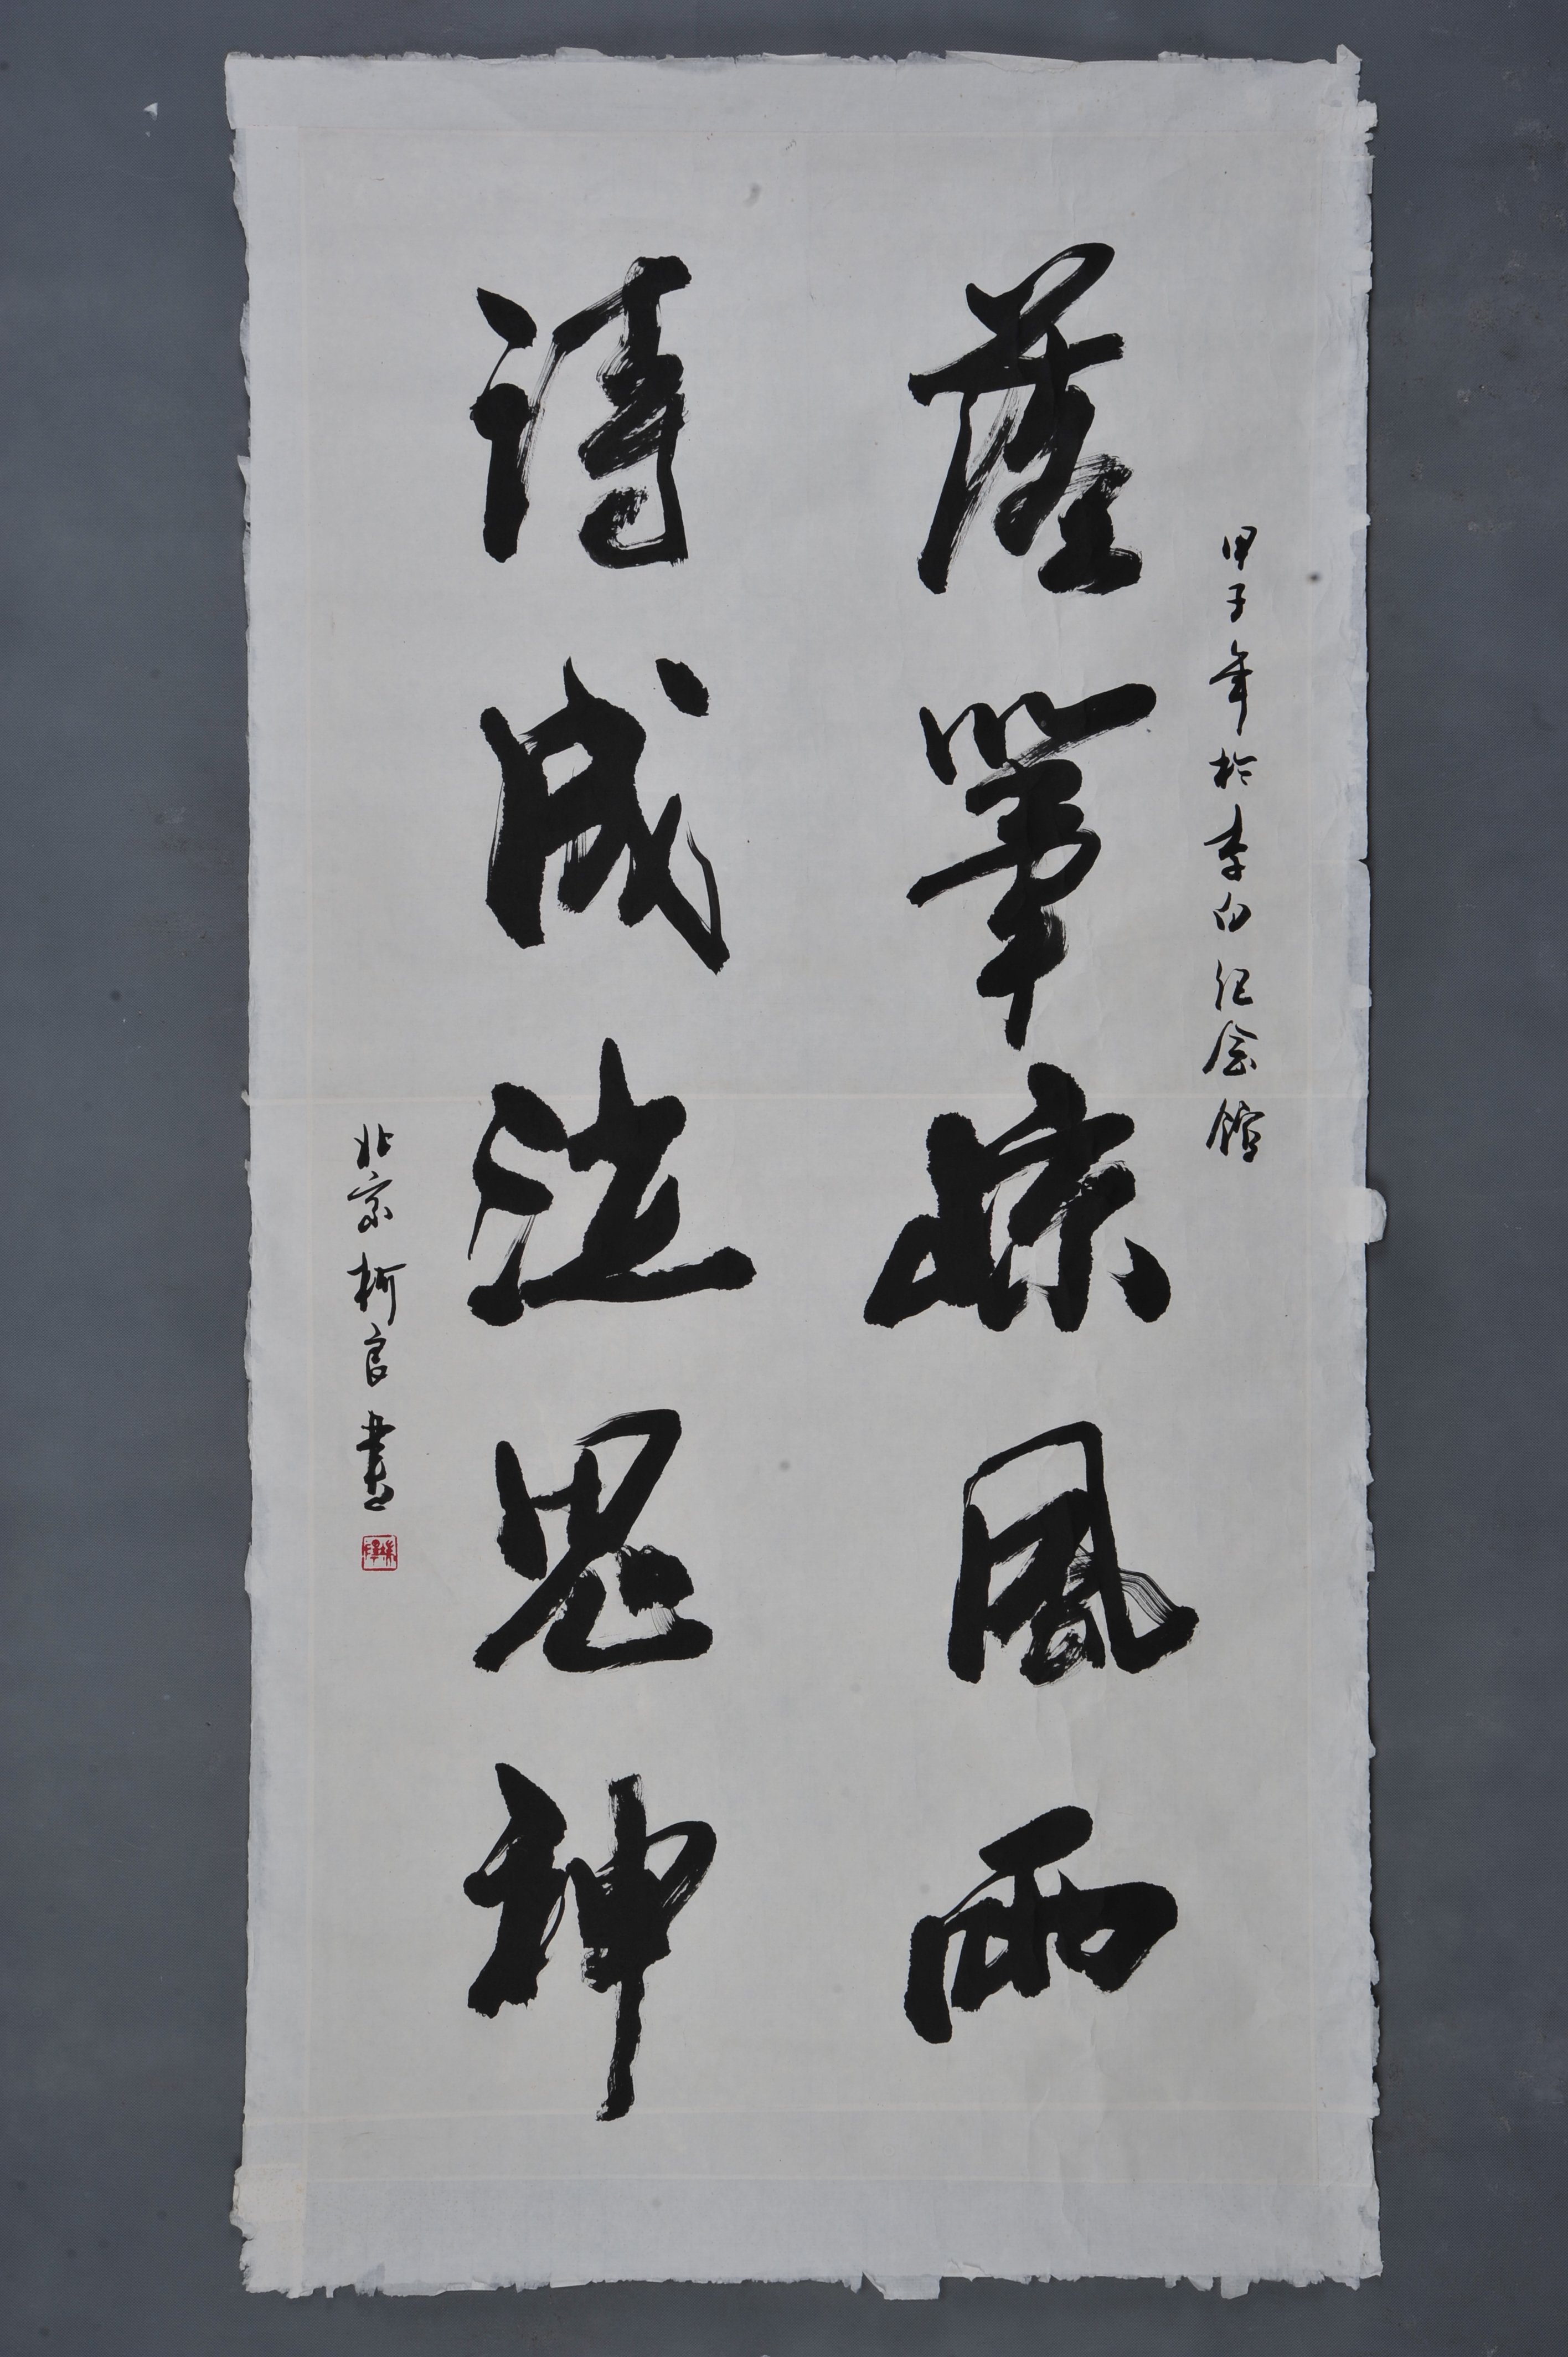 甲子年於李白纪念館
落筆惊風雨
詩成泣鬼神
北京柯良書